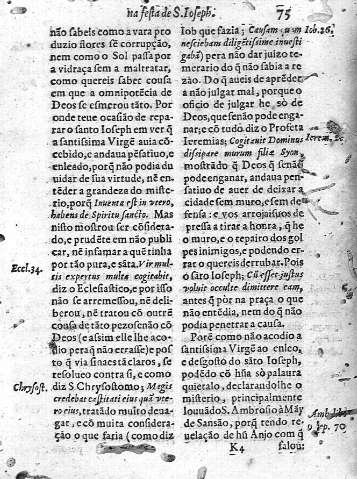 na festa de S. Ioseph.
75
não sabels como a vara pro
duzio flores sẽ corrupção,
nem como o Sol passa por
a vidraça sem a maltratar,
como quereis saber cousa
em que a omnipotẽcia de
Deos se esmerou tãto. Por
onde teue ocasião de repa-
rar o santo Ioseph em ver q̃
a santissima Virgẽ auia cõ-
cebido, e andaua pẽsatiuo, e
enleado, porq̃ não podia du
uidar de sua virtude, nẽ en-
tẽder a grandeza do miste-
rio, porq̃ Inuenta est in vtero,
habens de Spiritu sancto. Mas
nisto mostrou ser cõsidera-
do, e prudẽte em não publi
car, nẽ infamar a que tinha
por tão pura, e sãta. Vir mul-
tis expertus multa cogitabit,
diz o Ecclesiastico, e por isso
não se arremessou, nẽ deli-
berou, nẽ tratou cõ outrẽ
cousa de tãto pezo senão cõ
Deos (e assim elle lhe aco-
dio pera q̃ não errasse) e pos
to q̃ via sinaes tã claros, se
resolueo contra si, e como
diz S. Chrysostomo; Magis
credebat castitati eius quã vte-
ro eius, tratãdo muito deua-
gar, e cõ muita considera-
ção o que faria (como diz
Eccl. 34.
Chrysost.
Iob que fazia; Causam, quam
nesciebam diligẽtissime inuesti
gabã) pera não dar juizo te-
merario do q̃ não sabia a re-
zão. Do q̃ aueis de aprẽder,
a não julgar mal, porque o
oficio de julgar he só de
Deos, que senão pode enga-
nar; e cõ tudo diz o Profeta
Ieremias; Cogitauit Dominus
dissipare murum filiæ Syon,
mostrãdo q̃ Deos q̃ senão
pode enganar, andaua pen-
satiuo de auer de deixar a
cidade sem muro, e sem de
fensa: e vos arrojaisuos de
pressa a tirar a honra, q̃ he
o muro, e o repairo dos gol
pes inimigos, e podendo er-
rar o quereis derrubar. Pois
o sãto Ioseph; Cũ esset justus
voluit occulte dimittere eam,
antes q̃ pòr na praça o que
não entẽdia, nem do q̃ não
podia penetrar a causa.
Porẽ como não acodio a
santissima Virgẽ ao enleo,
e desgosto do sãto Ioseph,
podẽdo cõ hũa só palaura
quietalo, declarandolhe o
misterio, principalmente
louuãdo S. Ambrosio à Mãy
de Sansão, porq̃ tendo re-
uelação de hũ Anjo com q̃
Iob. 26.
Ierem. 2.
70
K4
falou: